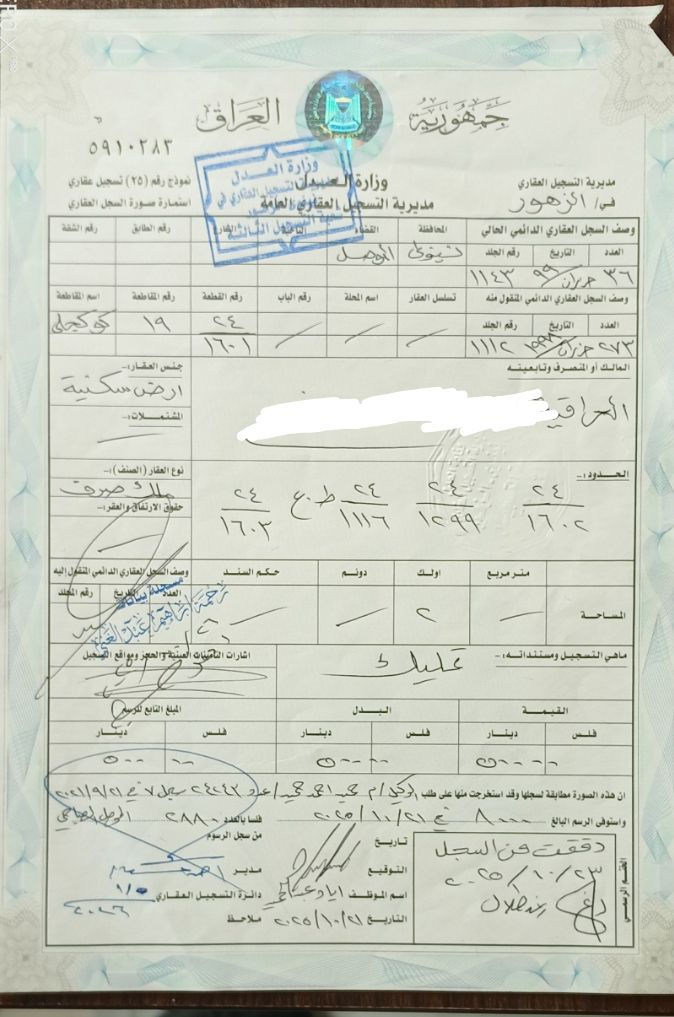 جمهورية العراق
٥٩١٠٢٨٣
وزارة العدل
مديرية التسجيل العقاري العامة
مديرية التسجيل العقاري
في/ الزهور
نموذج رقم (٢٥) تسجيل عقاري
استمارة صورة السجل العقاري
وزارة العدل
التسجيل العقاري في
شعبة التسجيل الثالثة
وصف السجل العقاري الدائمي الحالي المحافظة القضاء رقم الطابق رقم الشقة
العدد التاريخ رقم الجلد نينوى الموصل
٣٦ حزيران ٩٩ ١١٤٣
وصف السجل العقاري الدائمي المنقول منه تسلسل العقار اسم المحلة رقم الباب رقم القطعة رقم المقاطعة اسم المقاطعة
العدد التاريخ رقم الجلد ٢٤ ١٩ كوكجلي
٢٧٣ حزيران ١١١٢ ١٦٠١
المالك أو المتصرف وتابعيته جنس العقار:-
العراقية ارض سكنية
المشتملات:-
الحدود:- نوع العقار (الصنف):-
٢٤ ٢٤ ٢٤ ط.ع ٢٤ ملك صرف
١٦٠٢ ١٢٩٩ ١١١٦ ١٦٠٣
حقوق الارتفاق والعقر:-
متر مربع اولك دونم حكم السند وصف السجل العقاري الدائمي المنقول إليه
العدد التاريخ رقم الجلد
المساحة ٢
مسجلة
رحمة ابراهيم عبد الغني
ماهي التسجيل ومستنداته:- تمليك
اشارات التأمينات العينية والحجز ومواقع التسجيل
القيمة البدل المبلغ التابع للرسم
فلس دينار فلس دينار فلس دينار
٥٠٠٠٠ ٥٠٠٠٠ ٥٠٠
ان هذه الصورة مطابقة لسجلها وقد استخرجت منها على طلب الوكيل حميد احمد حميد عدد ٢٤٢٤٣ سجل ٧ في ٢٠٢١/٩/٢١
واستوفى الرسم البالغ ٨٠٠٠ في ٢٠٢٥/١٠/٢١ فلسا بالعدد ٢٨٨٠
من سجل الرسوم
تاريخ
التوقيع مدير
اسم الموظف اياد دائرة التسجيل العقاري
التاريخ ٢٠٢٥/١٠/٢١ ملاحظ
الختم الرسمي
دققت من السجل
٢٠٢٥/١٠/٢٣